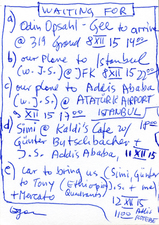 WAITING FOR
a) Odin Opsahl - Gee to arrive
@ 319 Grand 8 XII 15 1400
b) our plane to Istanbul
(w. J.S.) @ JFK 8 XII 15
c) our plane to Addis Ababa
(w. J.S.) @ ATATÜRK AIRPORT
XII 15 1700 ISTANBUL
d) Simi @ Kaldi's Cafe w/ 1800
Günter Butschbacher +
J.S. Addis Ababa, 11 XII 15
e) car to bring us (Simi, Günter
to Tony (Ethiopia) J.S. + me)
+ Mercato Quadrants
12 XII 15
1100 ADDIS